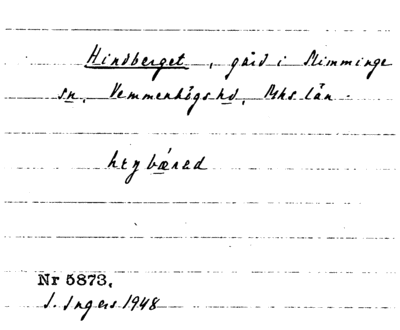 Hindberget, gård i Slimminge
sn, Vemmenhögs hd, Mhs. län.
Nr 5873.
I. Ingers 1948